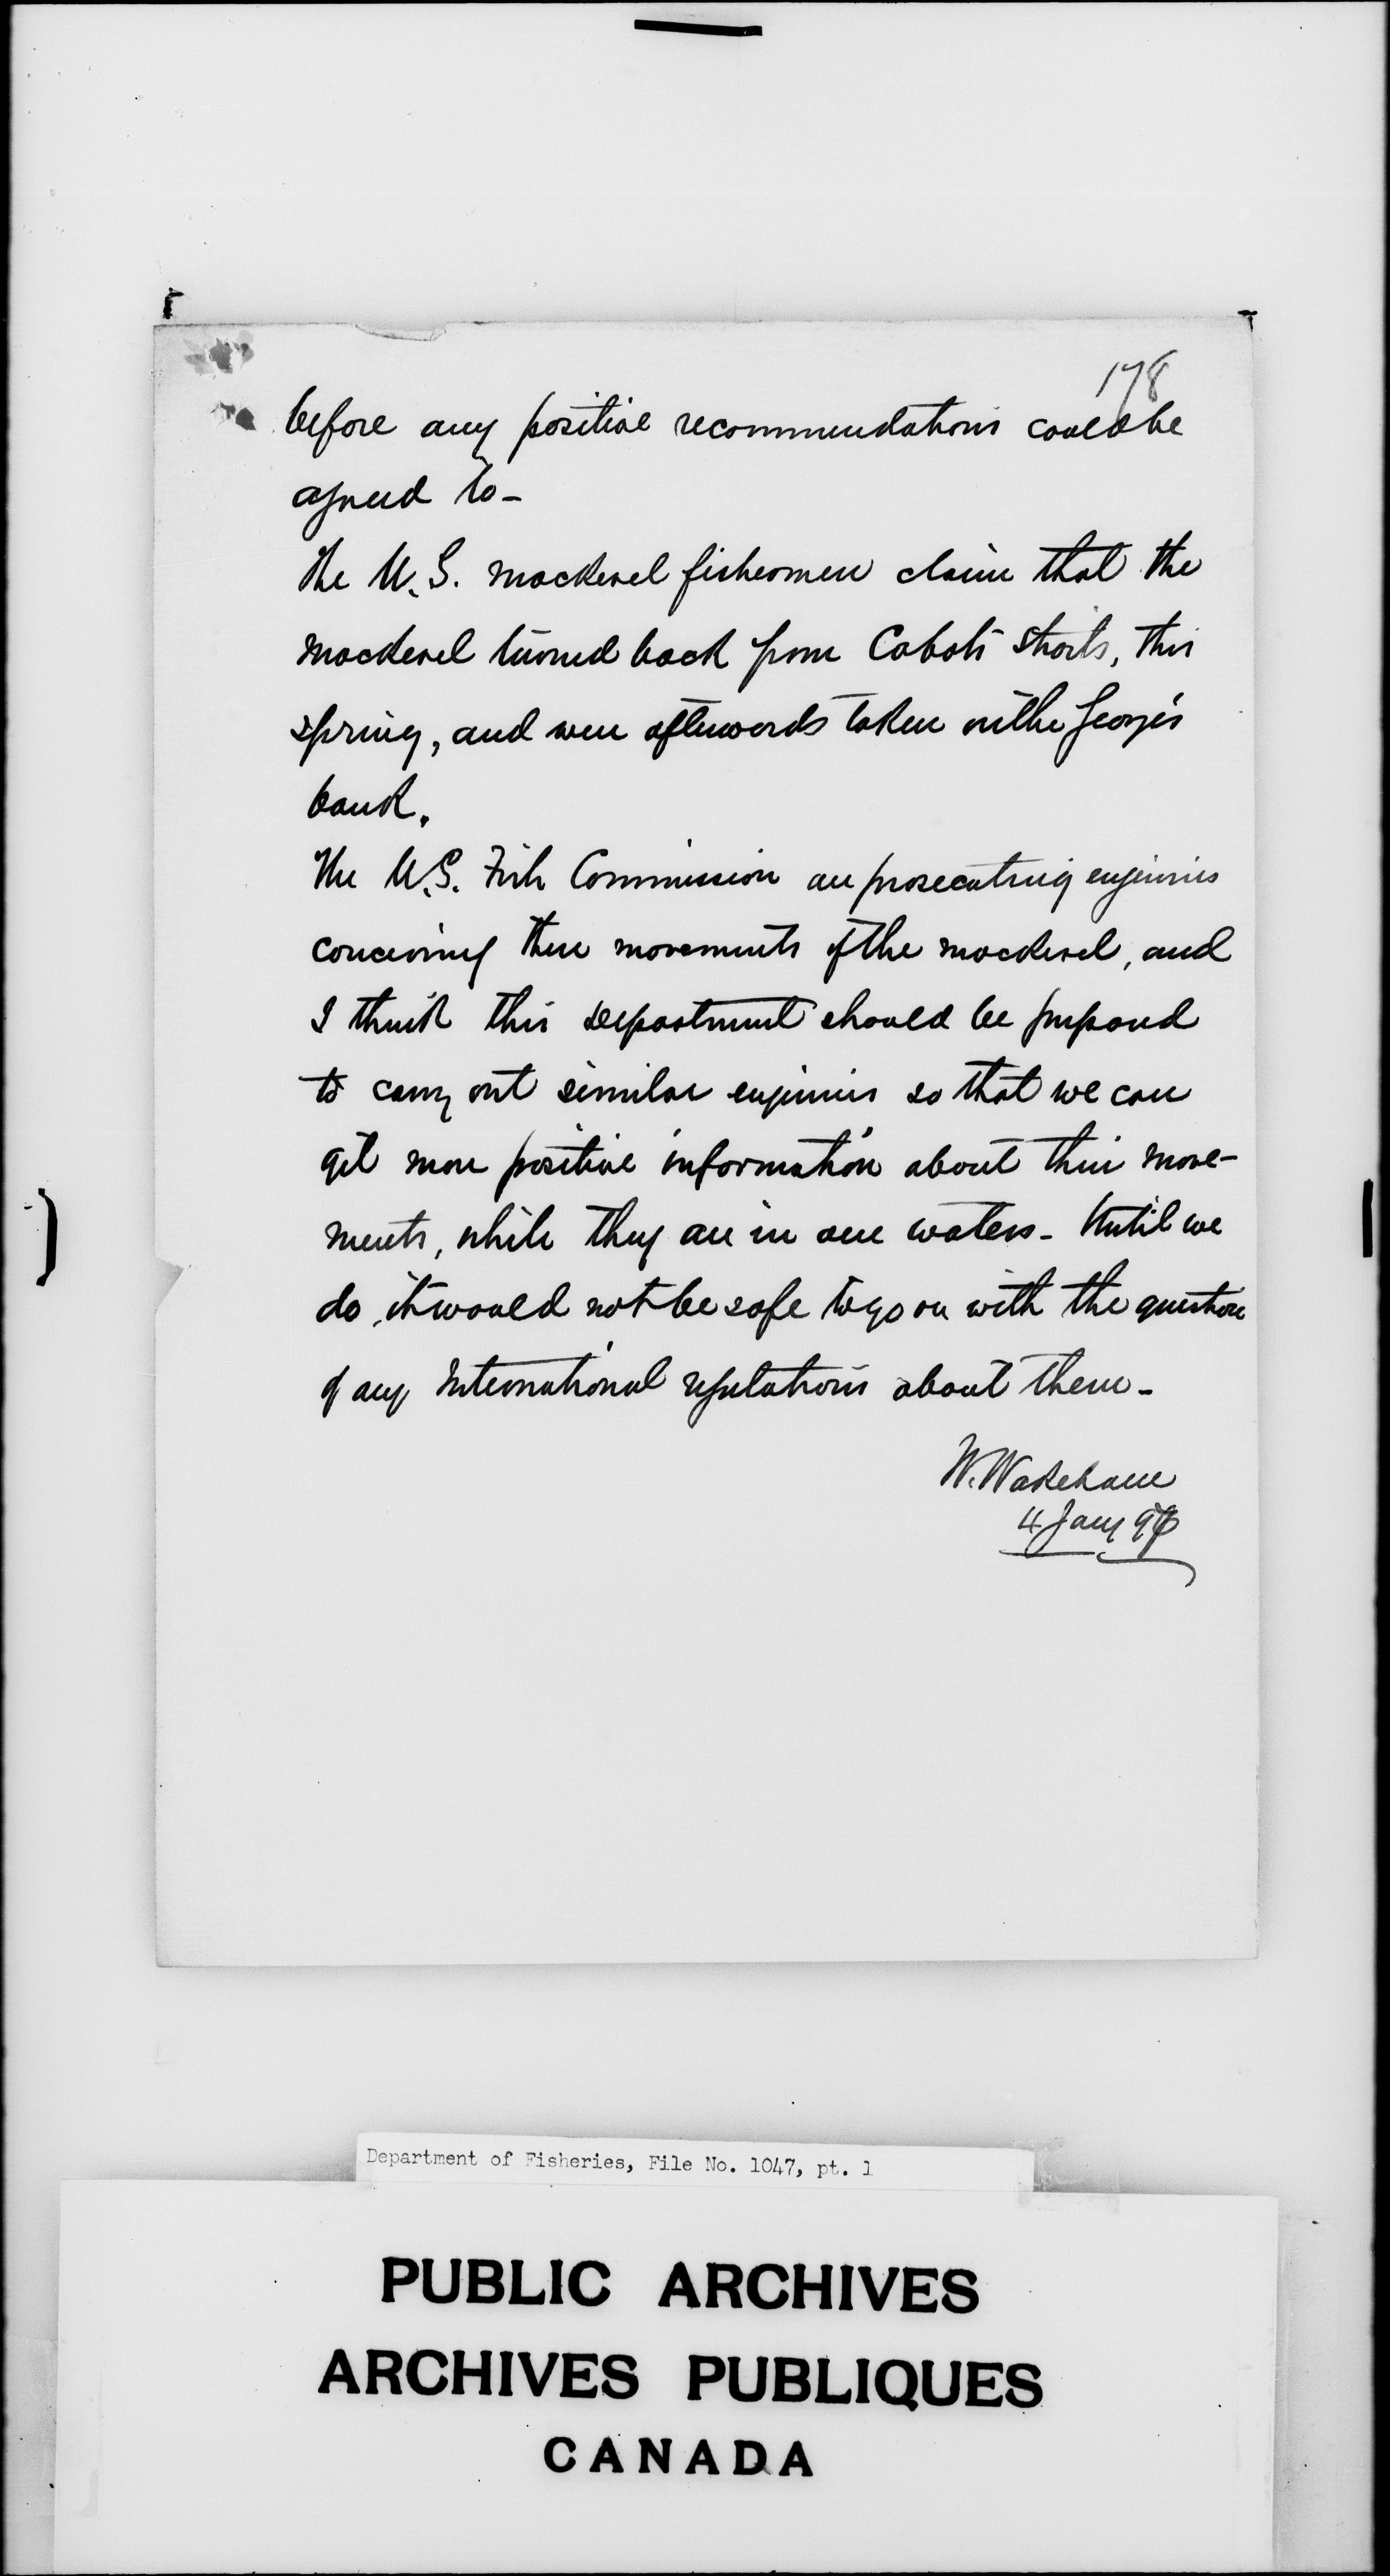 178
before any positive recommendations could be
agreed to -
The U.S. mackerel fishermen claim that the
mackerel turned back from Cabots Straits, this
spring, and were afterwards taken on the George's
bank.
The U.S. Fish Commission are prosecuting enquiries
concerning these movements of the mackerel, and
I think this department should be prepared
to carry out similar enquiries so that we can
get more positive information about their move-
ments, while they are in our waters - Until we
do, it would not be safe to go on with the question
of any International regulations about them -
W. Wakeham
4 Jany
Department of Fisheries, File No. 1047, pt. 1
PUBLIC ARCHIVES
ARCHIVES PUBLIQUES
CANADA